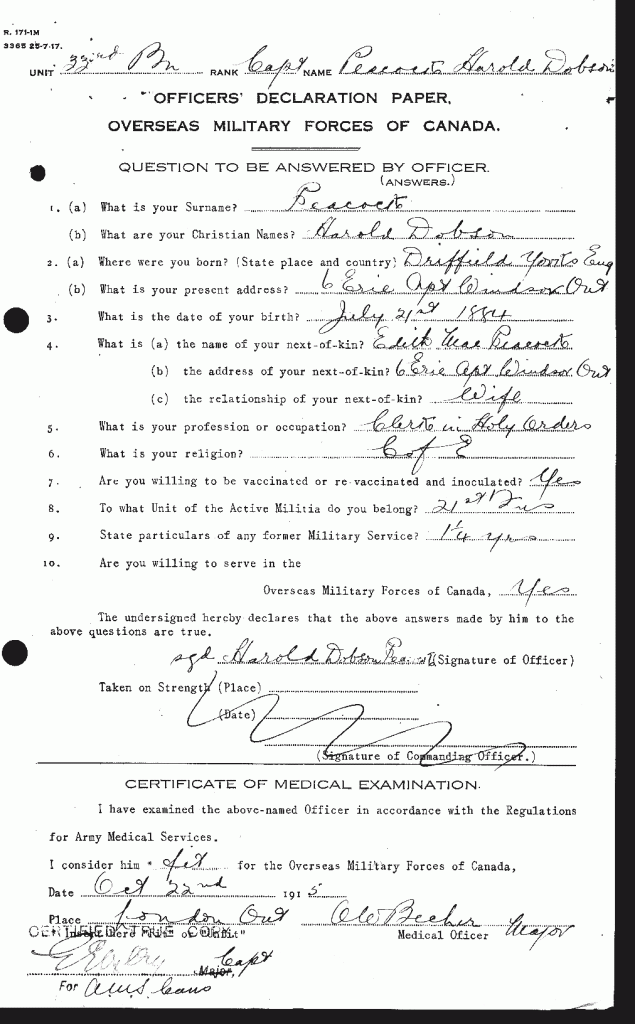 R. 171-1M
3365 25-7-17.
UNIT 33rd Bn RANK Capt NAME Peacock Harold Dobson
OFFICERS' DECLARATION PAPER,
OVERSEAS MILITARY FORCES OF CANADA.
QUESTION TO BE ANSWERED BY OFFICER.
(ANSWERS.)
1. (a) What is your Surname? Peacock
(b) What are your Christian Names? Harold Dobson
2. (a) Where were you born? (State place and country) Driffield Yorks Eng
(b) What is your present address? 6 Erie Apt Windsor Ont
3. What is the date of your birth? July 21st 1884
4. What is (a) the name of your next-of-kin? Edith Mae Peacock
(b) the address of your next-of-kin? 6 Erie Apt Windsor Ont
(c) the relationship of your next-of-kin? Wife
5. What is your profession or occupation? Clerk in Holy Orders
6. What is your religion? C of E
7. Are you willing to be vaccinated or re-vaccinated and inoculated? Yes
8. To what Unit of the Active Militia do you belong? 21st Fus
9. State particulars of any former Military Service? 1¼ yrs
10. Are you willing to serve in the
Overseas Military Forces of Canada, Yes
The undersigned hereby declares that the above answers made by him to the
above questions are true.
sgd Harold Dobson Peacock (Signature of Officer)
Taken on Strength (Place)
(Date)
(Signature of Commanding Officer.)
CERTIFICATE OF MEDICAL EXAMINATION.
I have examined the above-named Officer in accordance with the Regulations
for Army Medical Services.
I consider him * fit for the Overseas Military Forces of Canada,
Date Oct 22nd 1915
Place London Ont Major
CERTIFIED TRUE COPY
* Insert here "fit" or "unfit" Medical Officer
Major, Capt
For